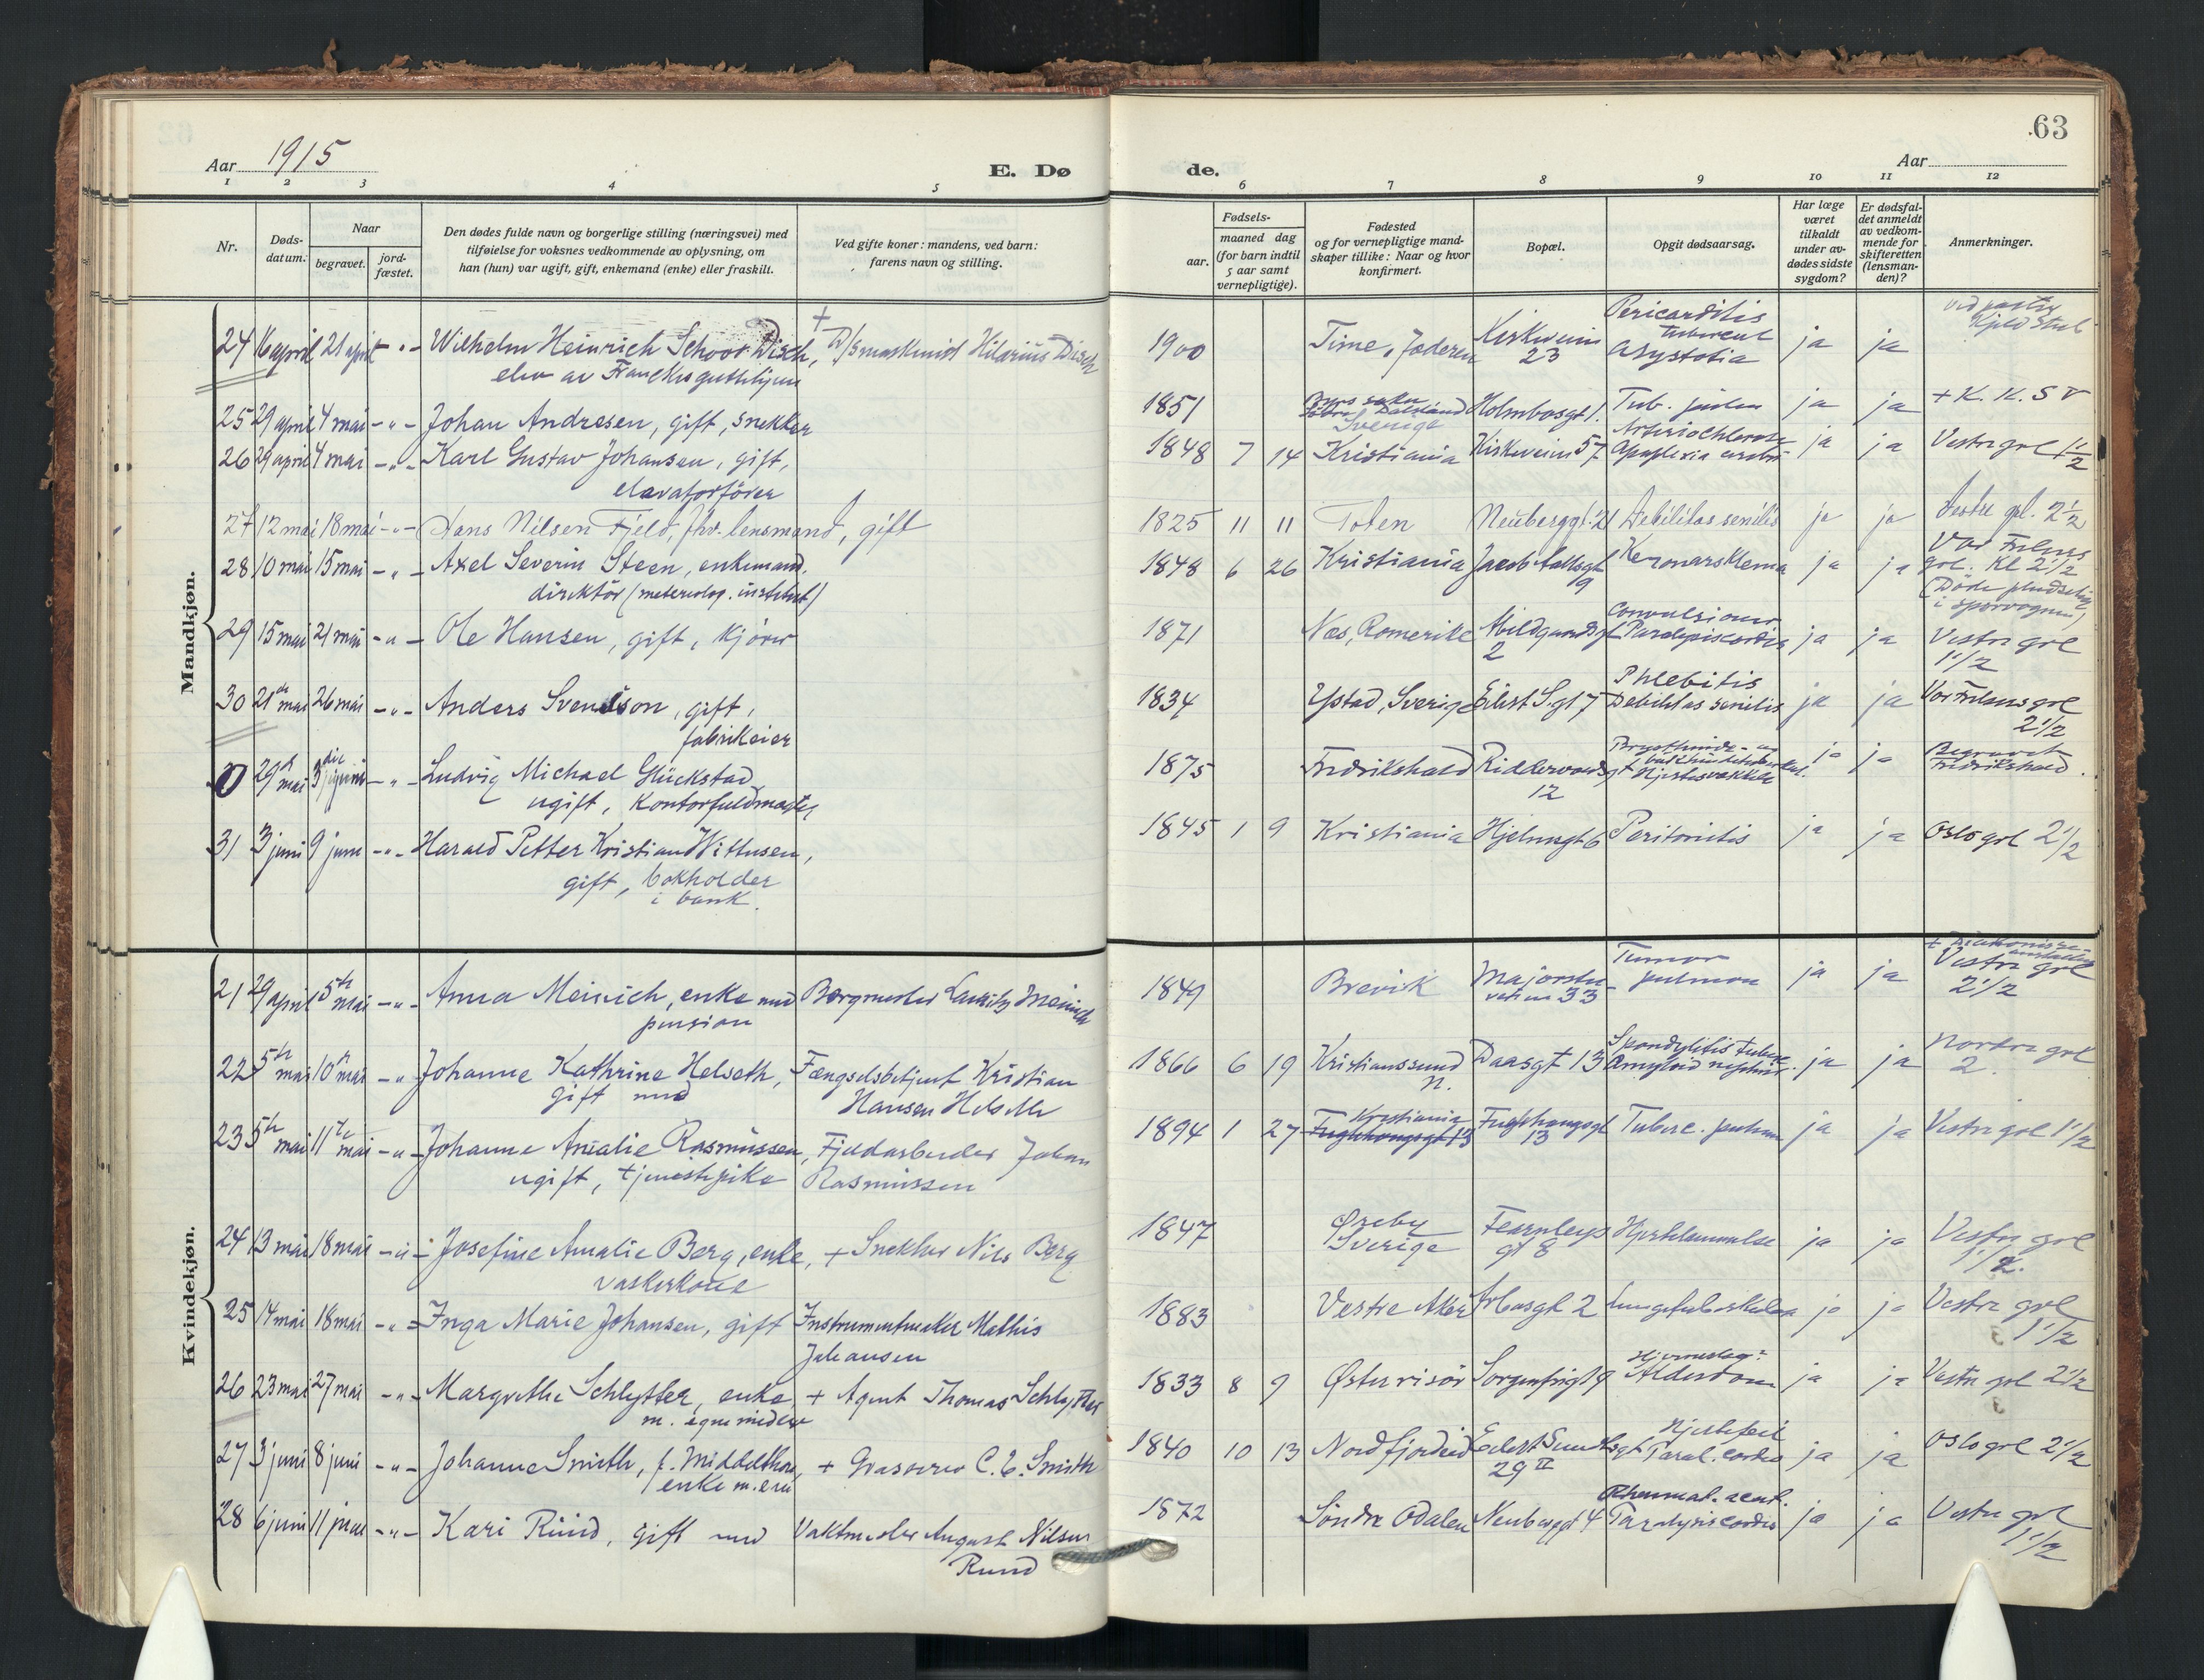 Aar 1915
E. Dø
de.
63
Aar
1 2 3 4 5 6 7 8 9 10 11 12
Nr.
Døds-
datum.
Naar
begravet.
jord-
fæstet.
Den dødes fulde navn og borgerlige stilling (næringsvei) med
tilføielse for voksnes vedkommende av oplysning, om
han (hun) var ugift, gift, enkemand (enke) eller fraskilt.
Ved gifte koner: mandens, ved barn:
farens navn og stilling.
Fødsels-
aar.
maaned dag
(for barn indtil
5 aar samt
vernepligtige).
Fødested
og for vernepligtige mand-
skaper tillike: Naar og hvor
konfirmert.
Bopæl.
Opgit dødsaarsag.
Har læge
været
tilkaldt
under av-
dødes sidste
sygdom?
Er dødsfal-
det anmeldt
av vedkom-
mende for
skifteretten
(lensman-
den)?
Anmerkninger.
Mandkjøn.
24 16 april 21 april -"- Wilhelm Heinrich Schoor Disch, Hilarius Disch 1900 Time, Jæderen Kirkeveien 23 Pericarditis tubercul Asystolia ja ja
elev av Franckes guttehjem
25 29 april 4 mai -"- Johan Andresen, gift, snekker 1851 Sverige Holmbosgt 1. Tub. ja ja + K. K. S V
26 29 april 4 mai -"- Karl Gustav Johansen, gift, 1848 7 14 Kristiania Kirkeveien 57 Apoplexia ja ja Vestre grl 1 1/2
elevatorfører
27 12 mai 18 mai -"- Hans Nilsen Fjeld, fhv. lensmand, gift 1825 11 11 Toten Neuberggt. 21 Debilitas senilis ja ja Vestre grl. 2 1/2
28 10 mai 15 mai -"- Axel Severin Steen, enkemand. 1848 6 26 Kristiania Jacob Aallsgt 9 ja ja Vor Frelsers grl. Kl 2 1/2
direktør (meteorolog. institut) (Døde pludselig i sporvognen)
29 15 mai 21 mai -"- Ole Hansen, gift, kjører 1871 Nes, Romerike Abildgaardsgt 2 Convulsioner Paralysis cordis ja ja Vestre grl 1 1/2
30 21de mai 26 mai -"- Anders Svendson, gift, 1834 Ystad, Sverige Eilert S. gt 7 Phlebitis Debilitas senilis ja ja Vor Frelsers grl 2 1/2
fabrikeier
0 29de mai 3die juni -"- Ludvig Michael Glückstad 1875 Fredrikshald Riddervoldsgt 12 ja ja Begravet Fredrikshald.
ugift, kontorfuldmægtig
31 3 juni 9 juni -"- Harald Petter Kristian Wittusen, 1845 1 9 Kristiania Hjelmsgt 6 Peritonitis ja ja Oslo grl 2 1/2
gift, bokholder
i bank.
Kvindekjøn.
21 29 april 5te mai -"- Anna Meinich, enke med Bergmester Lauritz Meinich 1849 Brevik Majorstuveien 33 Tumor pulmon ja ja Vestre grl 2 1/2
pension
22 5te mai 10de mai -"- Johanne Kathrine Helseth, Fængselsbetjent Kristian 1866 6 19 Kristianssund N. Daasgt 13 Spondylitis tuberc. Amyloid nephrit. ja ja Nordre grl 2.
gift med Hansen Helseth
23 5te mai 11te mai -"- Johanne Amalie Rasmussen, Fjeldarbeider Johan 1894 1 27 Kristiania Fuglehaugsgt 13 Fuglehaugsgt 13 Tuberc. pulm ja ja Vestre grl 1 1/2
ugift, tjenestepike Rasmussen
24 13 mai 18 mai -"- Josefine Amalie Berg, enke, + Snekker Nils Berg 1847 Sverige Fearnleys gt 8 Hjertelammelse ja ja Vestre grl 1 1/2.
vaskerkone
25 14 mai 18 mai -"- Inga Marie Johansen, gift Instrumentmaker Mathis 1883 Vestre Aker Arbosgt 2 Lungetuberkulose ja ja Vestre grl 1 1/2
Johansen
26 23 mai 27 mai -"- Margrethe Schlytter, enke, + Agent Thomas Schlytter 1833 8 9 Østerrisør Sorgenfrigt 9 Alderdom ja ja Vestre grl 2 1/2
m. egne midler
27 3 juni 8 juni -"- Johanne Smith, f. Middelthon, + Grosserer C. E. Smith 1840 10 13 Nordfjordeid Eilert Sundtsgt 29 II Hjertefeil Paral. cordis ja ja Oslo grl 2 1/2
enke
28 6 juni 11 juni -"- Kari Ruud, gift med Vaktmester August Nilsen 1872 Søndre Odalen Neuberggt 4 Rheumat. acut. Paralysis cordis ja ja Vestre grl 1 1/2
Ruud